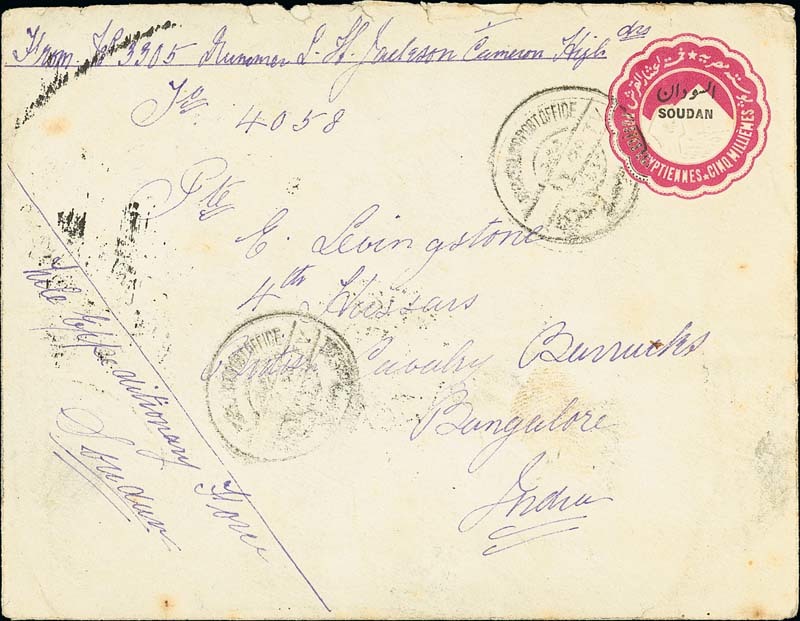 From No 3305 Drummer L. H. Jackson Cameron Highdrs
To
4058
Pte
E. Levingstone
4th Hussars
Cavalry Barracks
Bangalore
India
Nile Expeditionary Force
Soudan
بوستة مصرية
السودان
SOUDAN
POSTES EGYPTIENNES CINQ MILLIÈMES
POST OFFICE
POST OFFICE